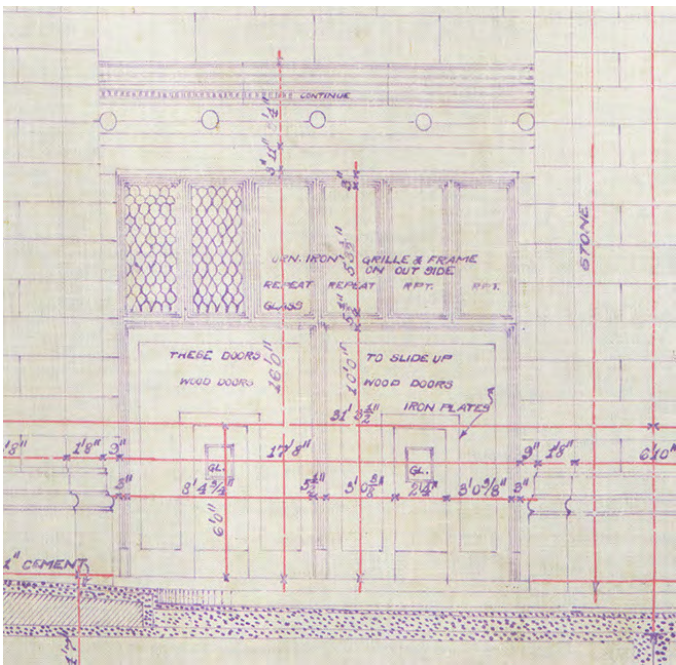 CONTINUE
3'11"
3"
ORN. IRON GRILLE & FRAME
ON OUT SIDE
REPEAT REPEAT RPT. RPT.
GLASS
STONE
16'0"
10'0"
THESE DOORS TO SLIDE UP
WOOD DOORS WOOD DOORS
IRON PLATES
31' 3½"
1'8" 9" 17'8" 9" 1'8" 6'10"
GL. GL.
3" 8'4¾" 5½" 3'0⅝" 2'4" 3'0⅝" 3"
6'0"
1" CEMENT